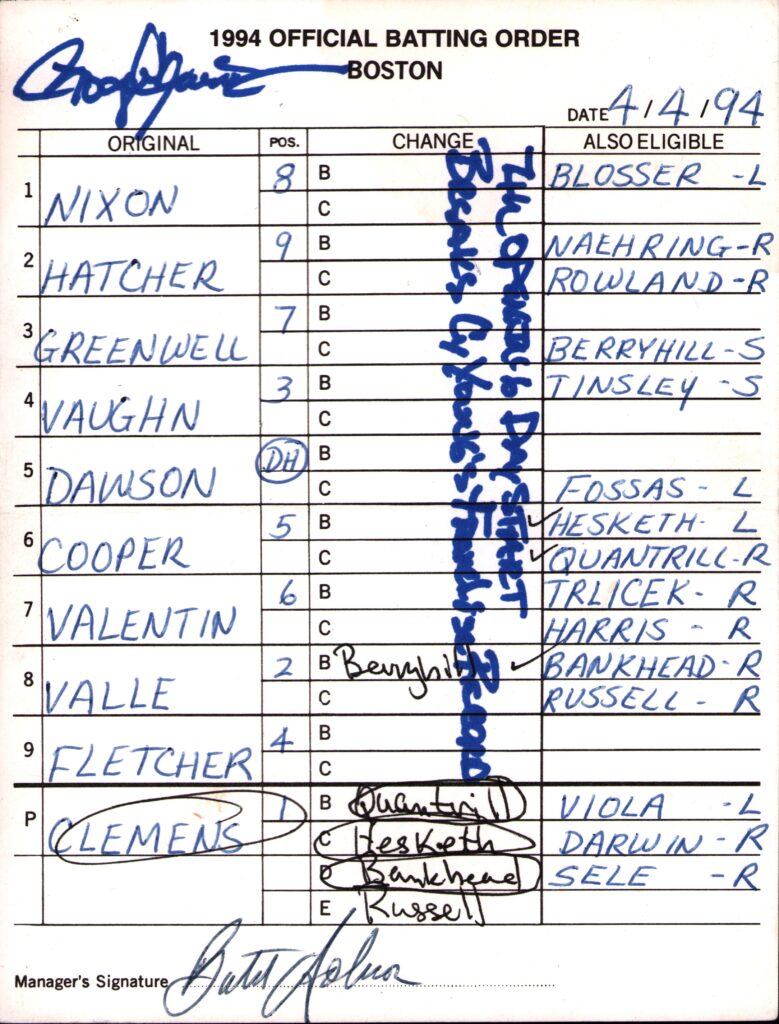 1994 OFFICIAL BATTING ORDER
BOSTON
DATE 4/4/94
ORIGINAL POS. CHANGE ALSO ELIGIBLE
1 NIXON 8 B BLOSSER - L
C
2 HATCHER 9 B NAEHRING - R
C ROWLAND - R
3 GREENWELL 7 B
C BERRYHILL - S
4 VAUGHN 3 B TINSLEY - S
C
5 DAWSON DH B
C FOSSAS - L
6 COOPER 5 B ✓ HESKETH - L
C ✓ QUANTRILL - R
7 VALENTIN 6 B TRLICEK - R
C HARRIS - R
8 VALLE 2 B Berryhill ✓ BANKHEAD - R
C RUSSELL - R
9 FLETCHER 4 B
C
P CLEMENS 1 B Quantrill VIOLA - L
C Hesketh DARWIN - R
D Bankhead SELE - R
E Russell
7th OPENING DAY START
BREAKS Cy Young's Franchise RECORD
Manager's Signature Butch Hobson